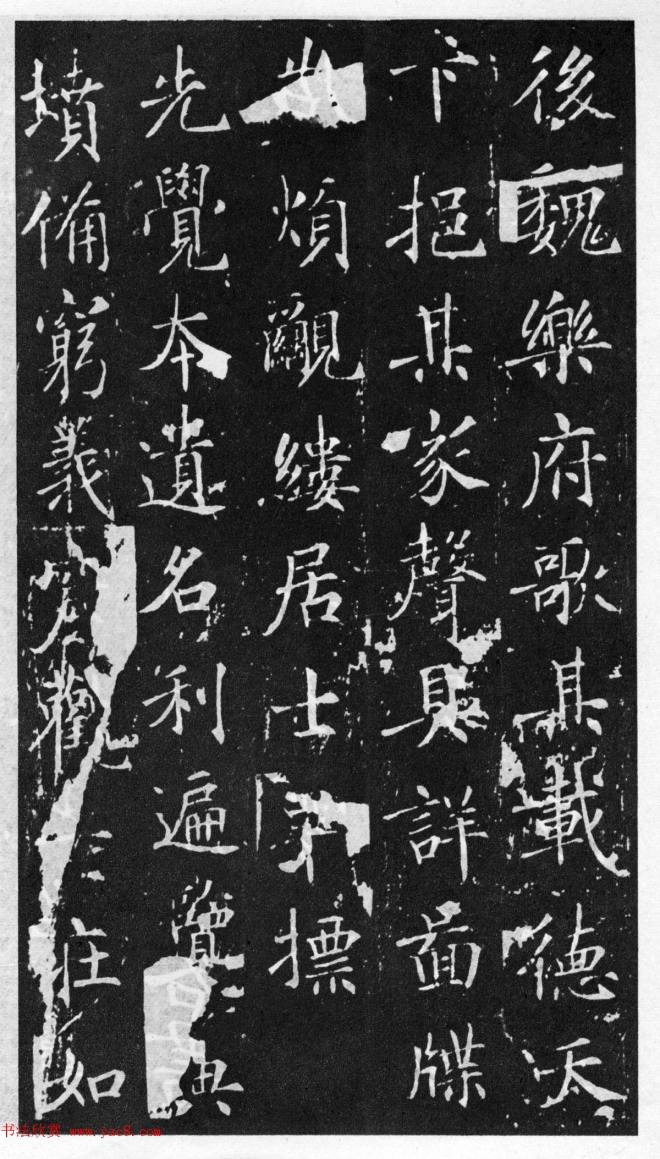 後魏樂府歌其載德
卞挹其家聲具詳啚牒
豈煩覼縷居士標
先覺本遺名利遍覽典
墳備窮義觀莊如
书法欣赏 www.yac8.com